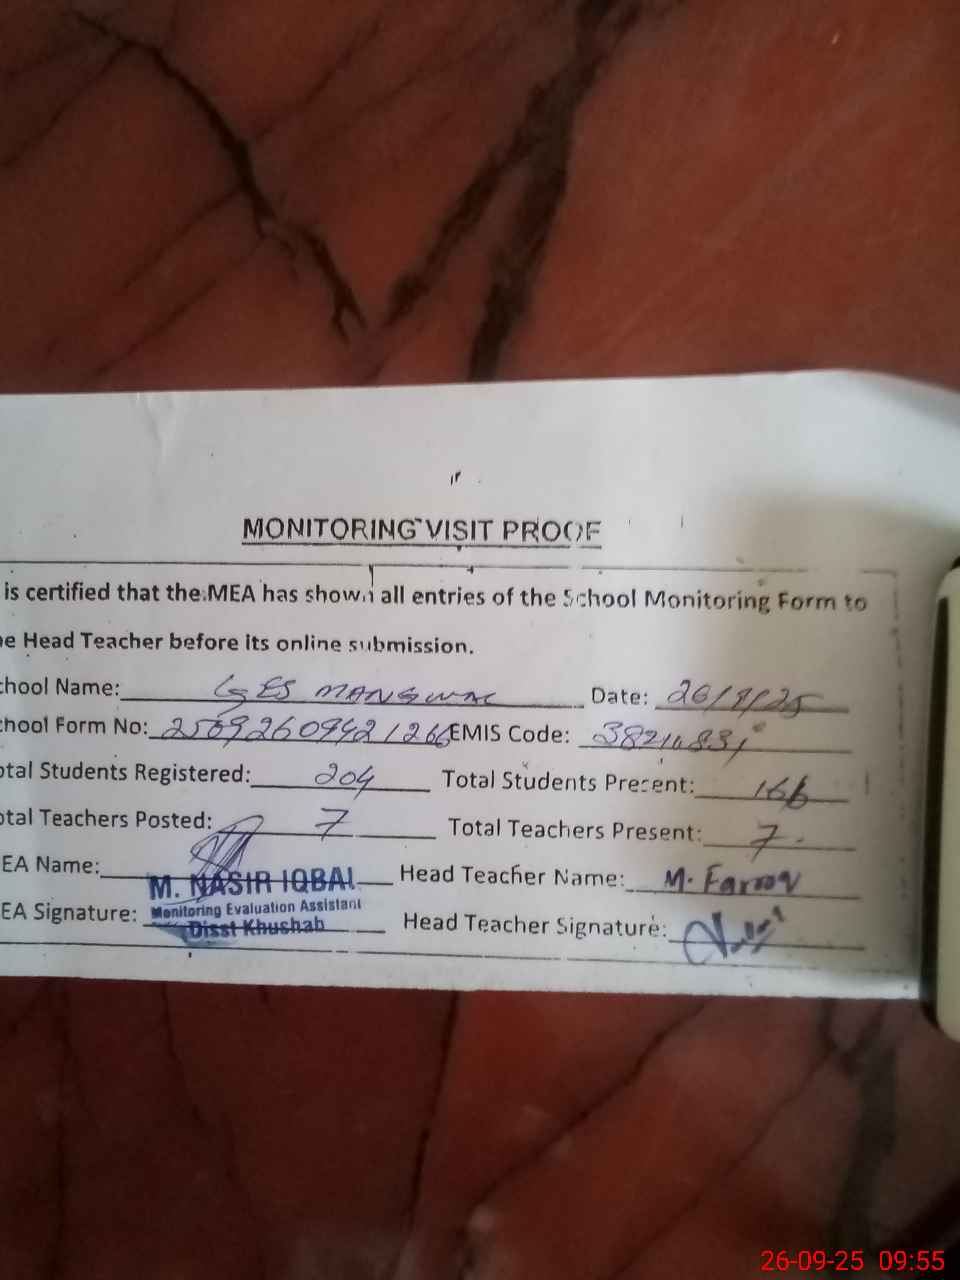 MONITORING VISIT PROOF
is certified that the MEA has shown all entries of the School Monitoring Form to
e Head Teacher before its online submission.
chool Name: GES MANGWAL Date: 26/9/25
chool Form No: EMIS Code:
otal Students Registered: 204 Total Students Present: 166
otal Teachers Posted: 7 Total Teachers Present: 7
EA Name: M. NASIR IQBAL Head Teacher Name: M. Farooq
EA Signature: Monitoring Evaluation Assistant Head Teacher Signature:
Disst Khushab
26-09-25 09:55